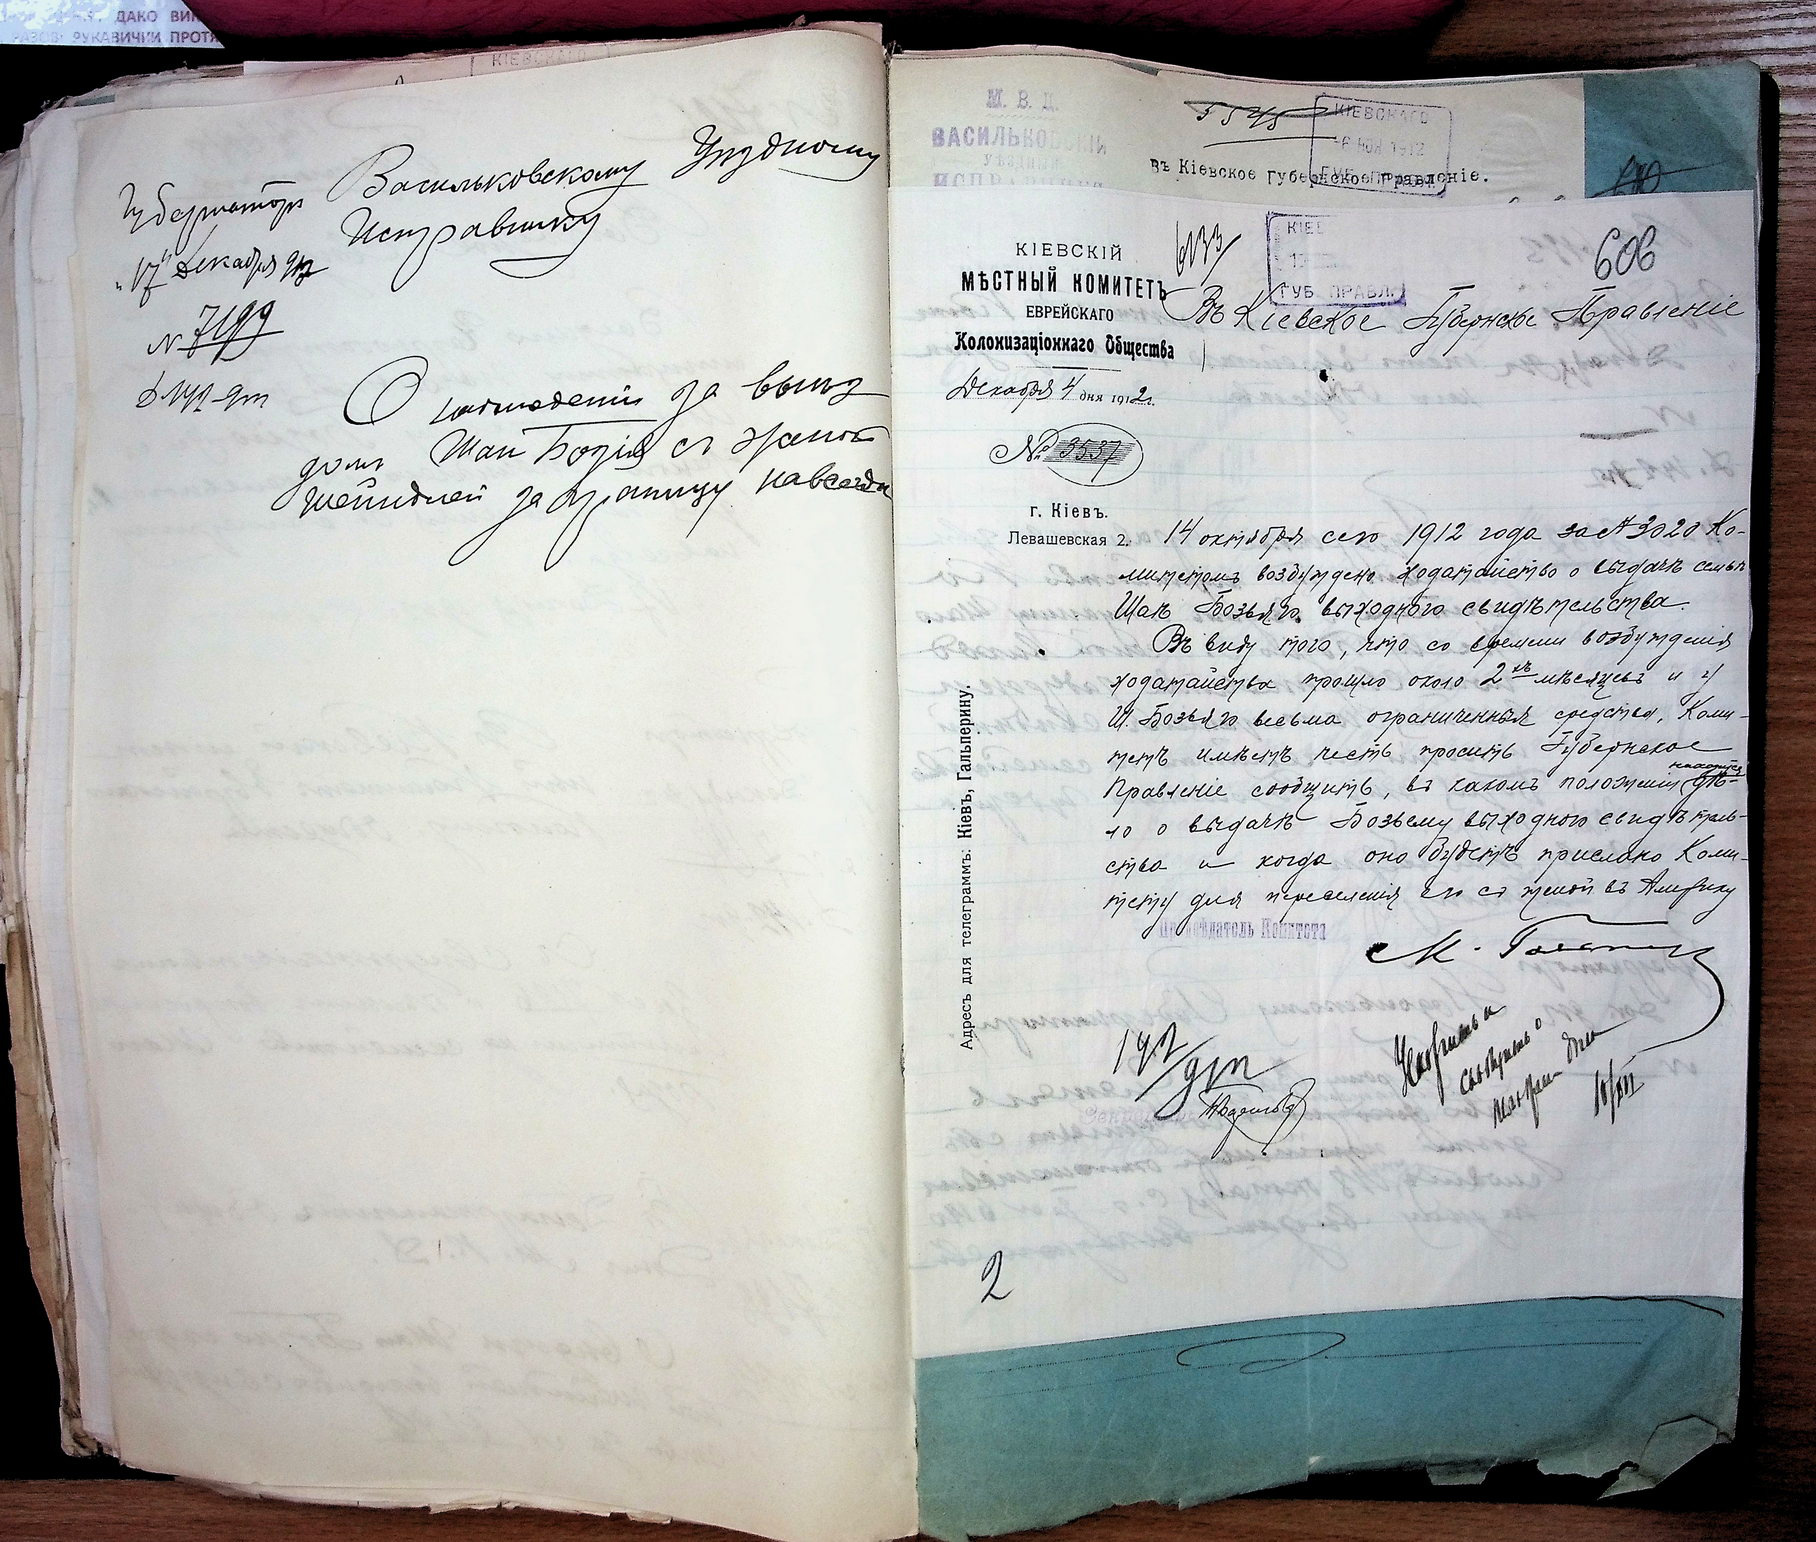 ДАКО ВИК
РАЗОВІ РУКАВИЧКИ ПРОТЯ
КІЕВСКАГО
Губернаторъ
"17" декабря 912
N 7199
Васильковскому Уѣздному
Исправнику
О наблюденіи за выѣз
домъ Шаи Бозія съ женой
за границу навсегда
М. В. Д.
ВАСИЛЬКОВСКІЙ
УѢЗДНЫЙ
ИСПРАВНИКЪ
5545
КІЕВСКАГО
-6 НОЯ 1912
ГУБ. ПРАВЛ.
Въ Кіевское Губернское Правленіе.
КІЕВСКІЙ
МѢСТНЫЙ КОМИТЕТЪ
ЕВРЕЙСКАГО
Колонизаціоннаго Общества
Декабря 4 дня 1912 г.
№ 3537
г. Кіевъ.
Левашевская 2.
6133
КІЕ
ГУБ. ПРАВЛ.
606
Въ Кіевское Губернское Правленіе
14 октября сего 1912 года за N 3020 Ко-
митетомъ возбуждено ходатайство о выдачѣ семьѣ
Шаи Бозьяго выходного свидѣтельства.
Въ виду того, что со времени возбужденія
ходатайства прошло около 2хъ мѣсяцевъ и у
Ш. Бозьяго весьма ограниченныя средства, Коми-
тетъ имѣетъ честь просить Губернское
Правленіе сообщить, въ какомъ положеніи находится дѣ-
ло о выдачѣ Бозьему выходного свидѣтель-
ства и когда оно будетъ прислано Коми-
тету для переселенія его съ женой въ Америку
Предсѣдатель Комитета
Адресъ для телеграммъ: Кіевъ, Гальперину.
142/
10/XII
2